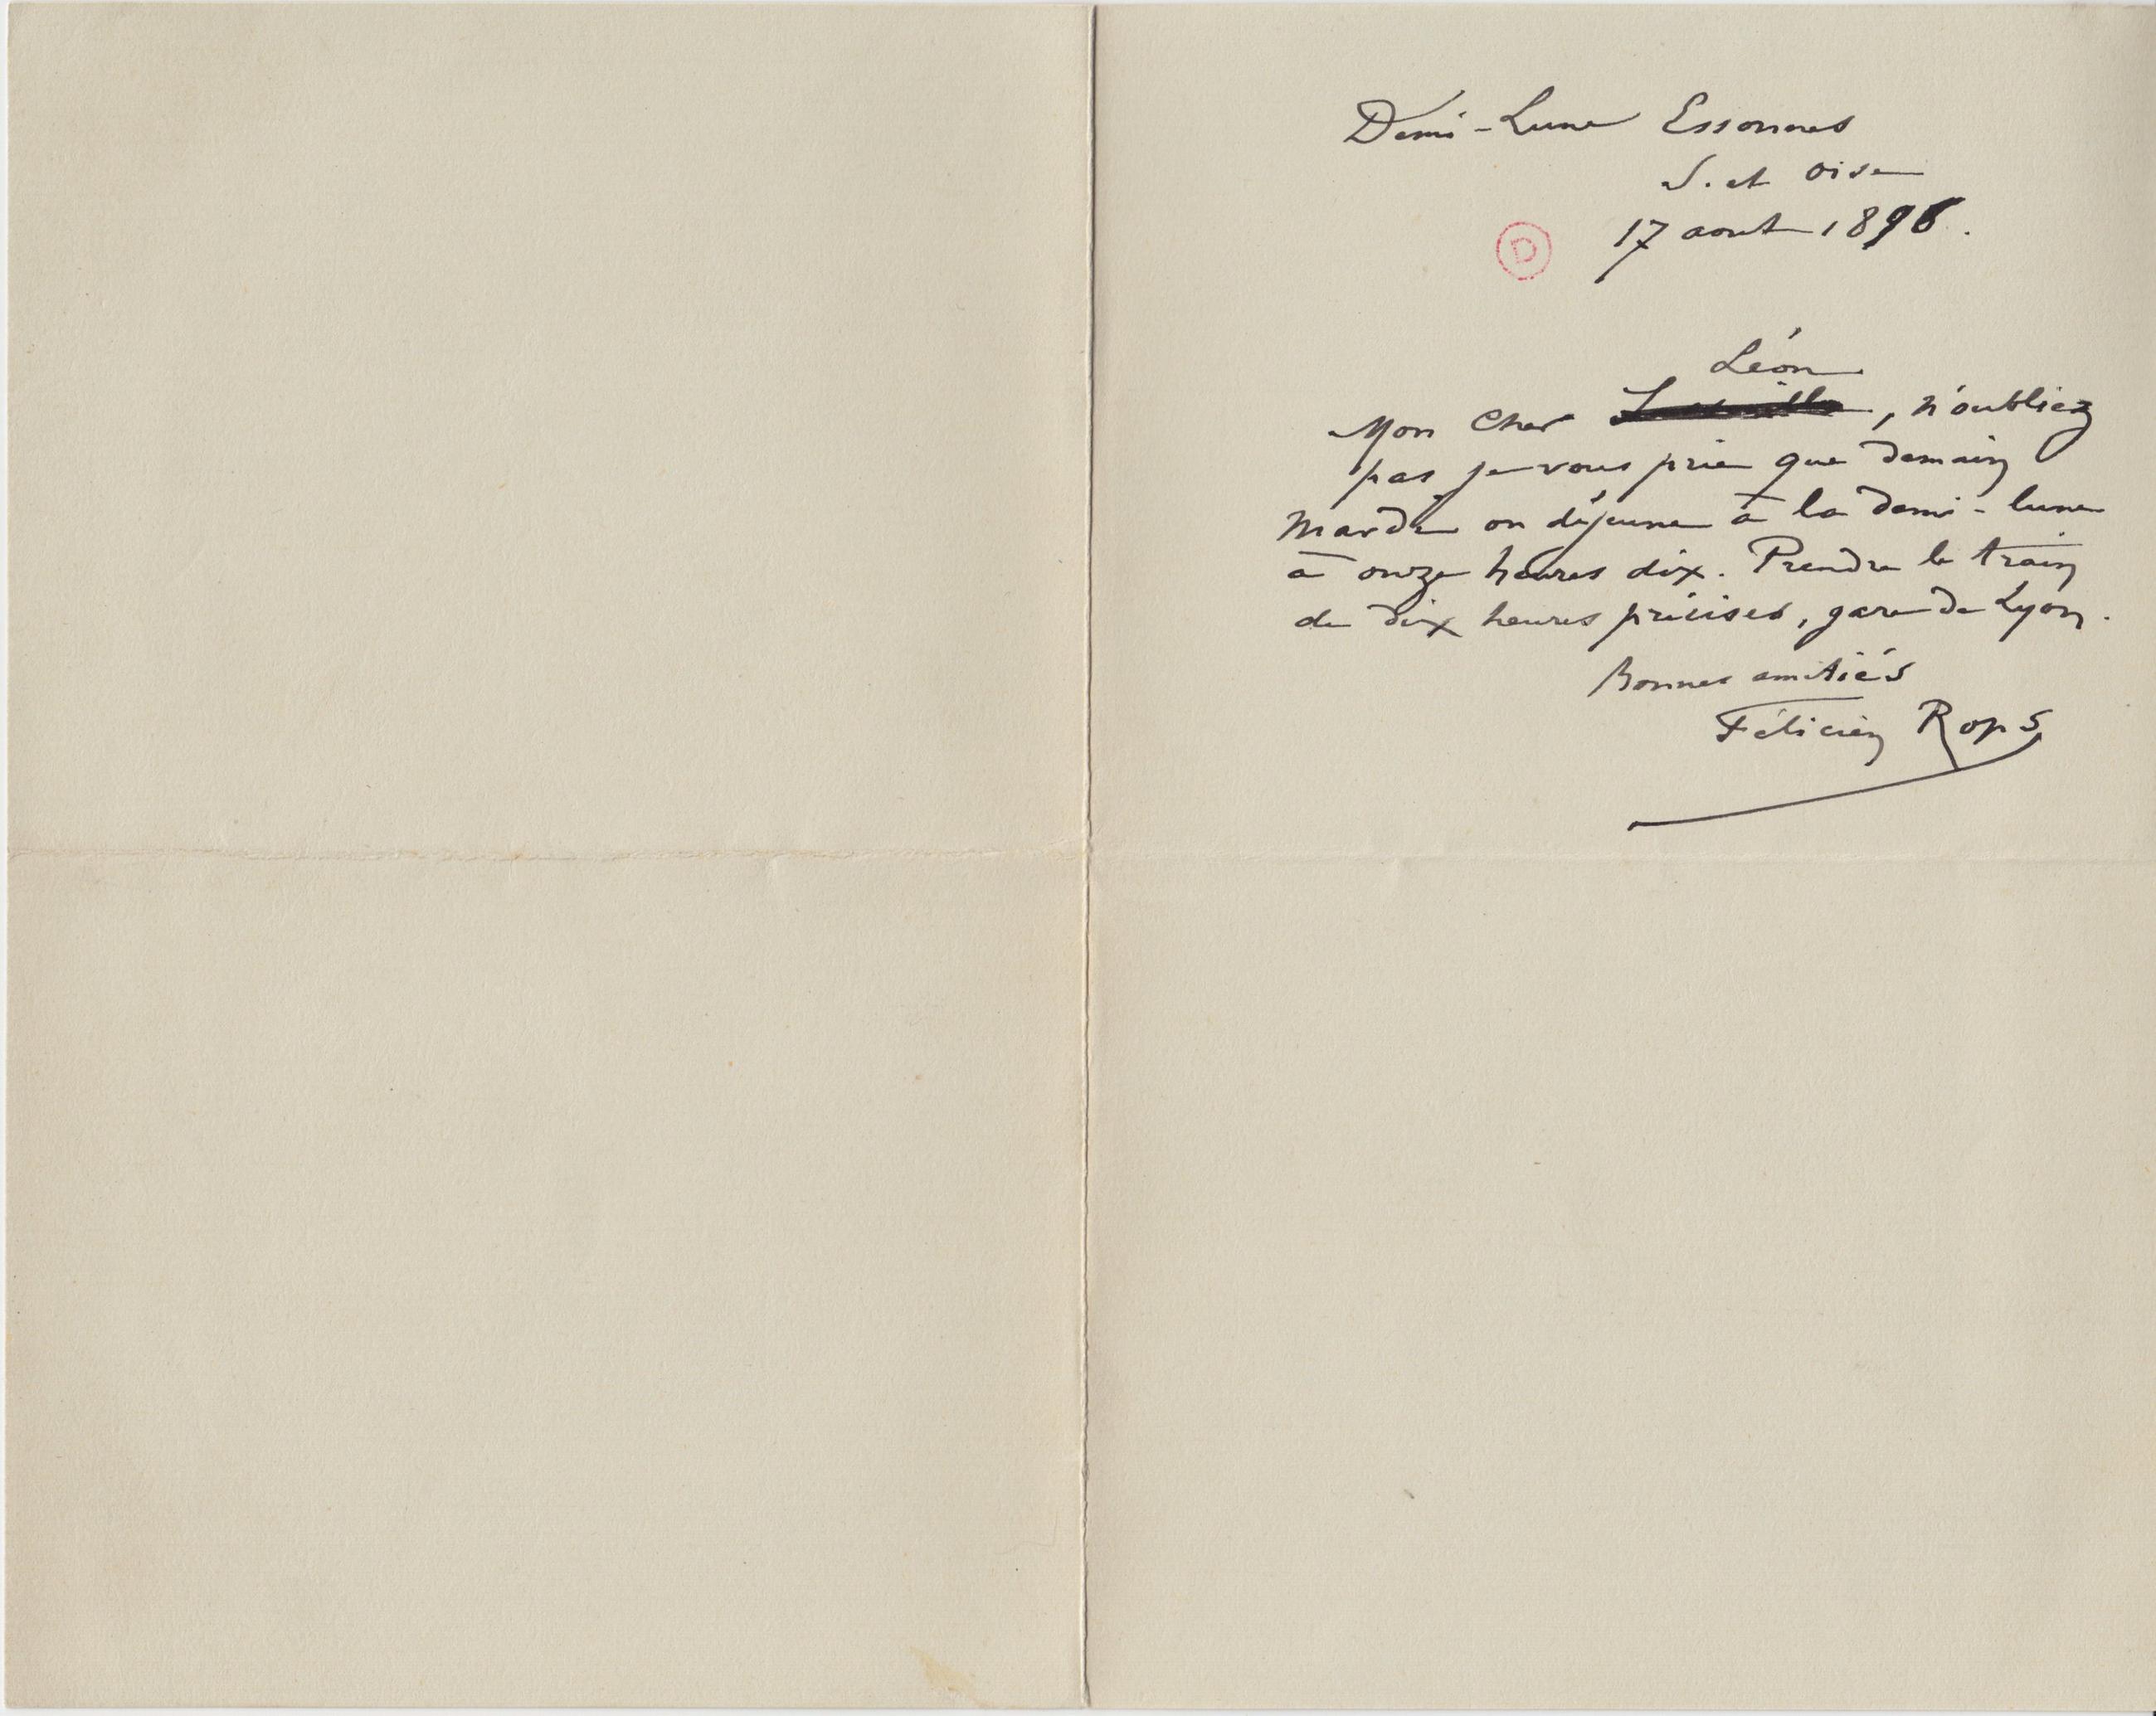 Demi-Lune Essonnes
S. et Oise
17 aout 1896.
D
Léon
Mon Cher , n'oubliez
pas je vous prie que demain
Mardi on déjeune à la demi-lune
à onze heures dix. Prendre le train
de dix heures précises, gare de Lyon.
Bonnes amitiés
Félicien Rops